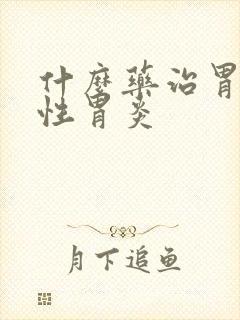 什麼藥治胃
性胃炎
月下追鱼